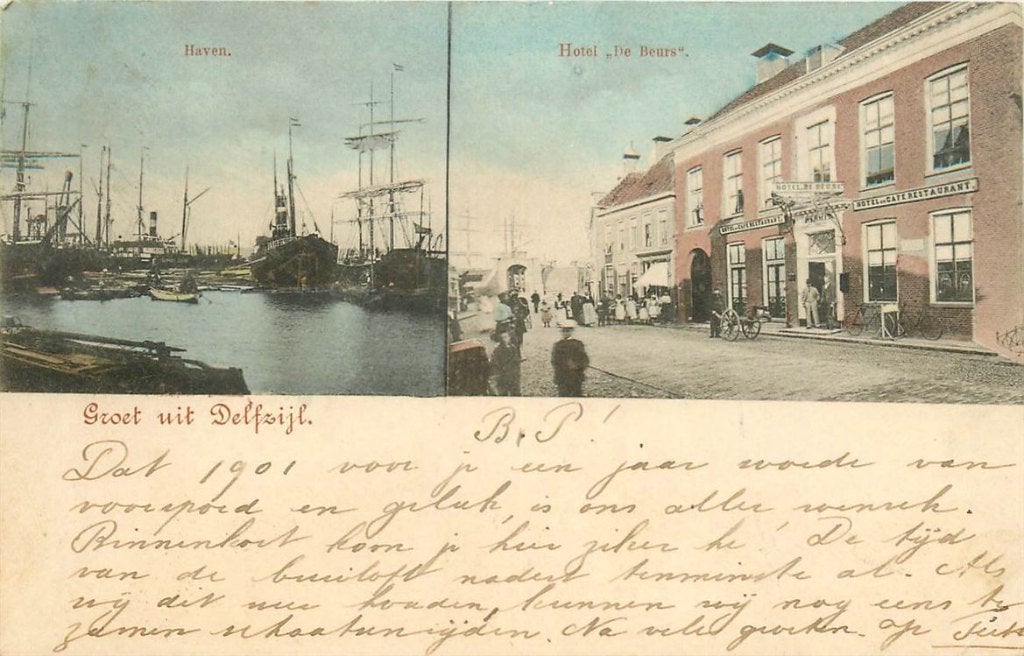 Haven.
Hotel „De Beurs“.
HOTEL DE BEURS
HOTEL CAFÉ RESTAURANT
HOTEL en CAFÉ RESTAURANT
Groet uit Delfzijl.
B. P!
Dat 1901 voor je een jaar worde van
voorspoed en geluk, is ons aller wensch.
Binnenkort kom je hier zeker hè! De tijd
van de bruiloft nadert tenminste al. Als
wij dit weer houden, kunnen wij nog eens te
zamen schaatsenrijden. Na vele groeten. Op